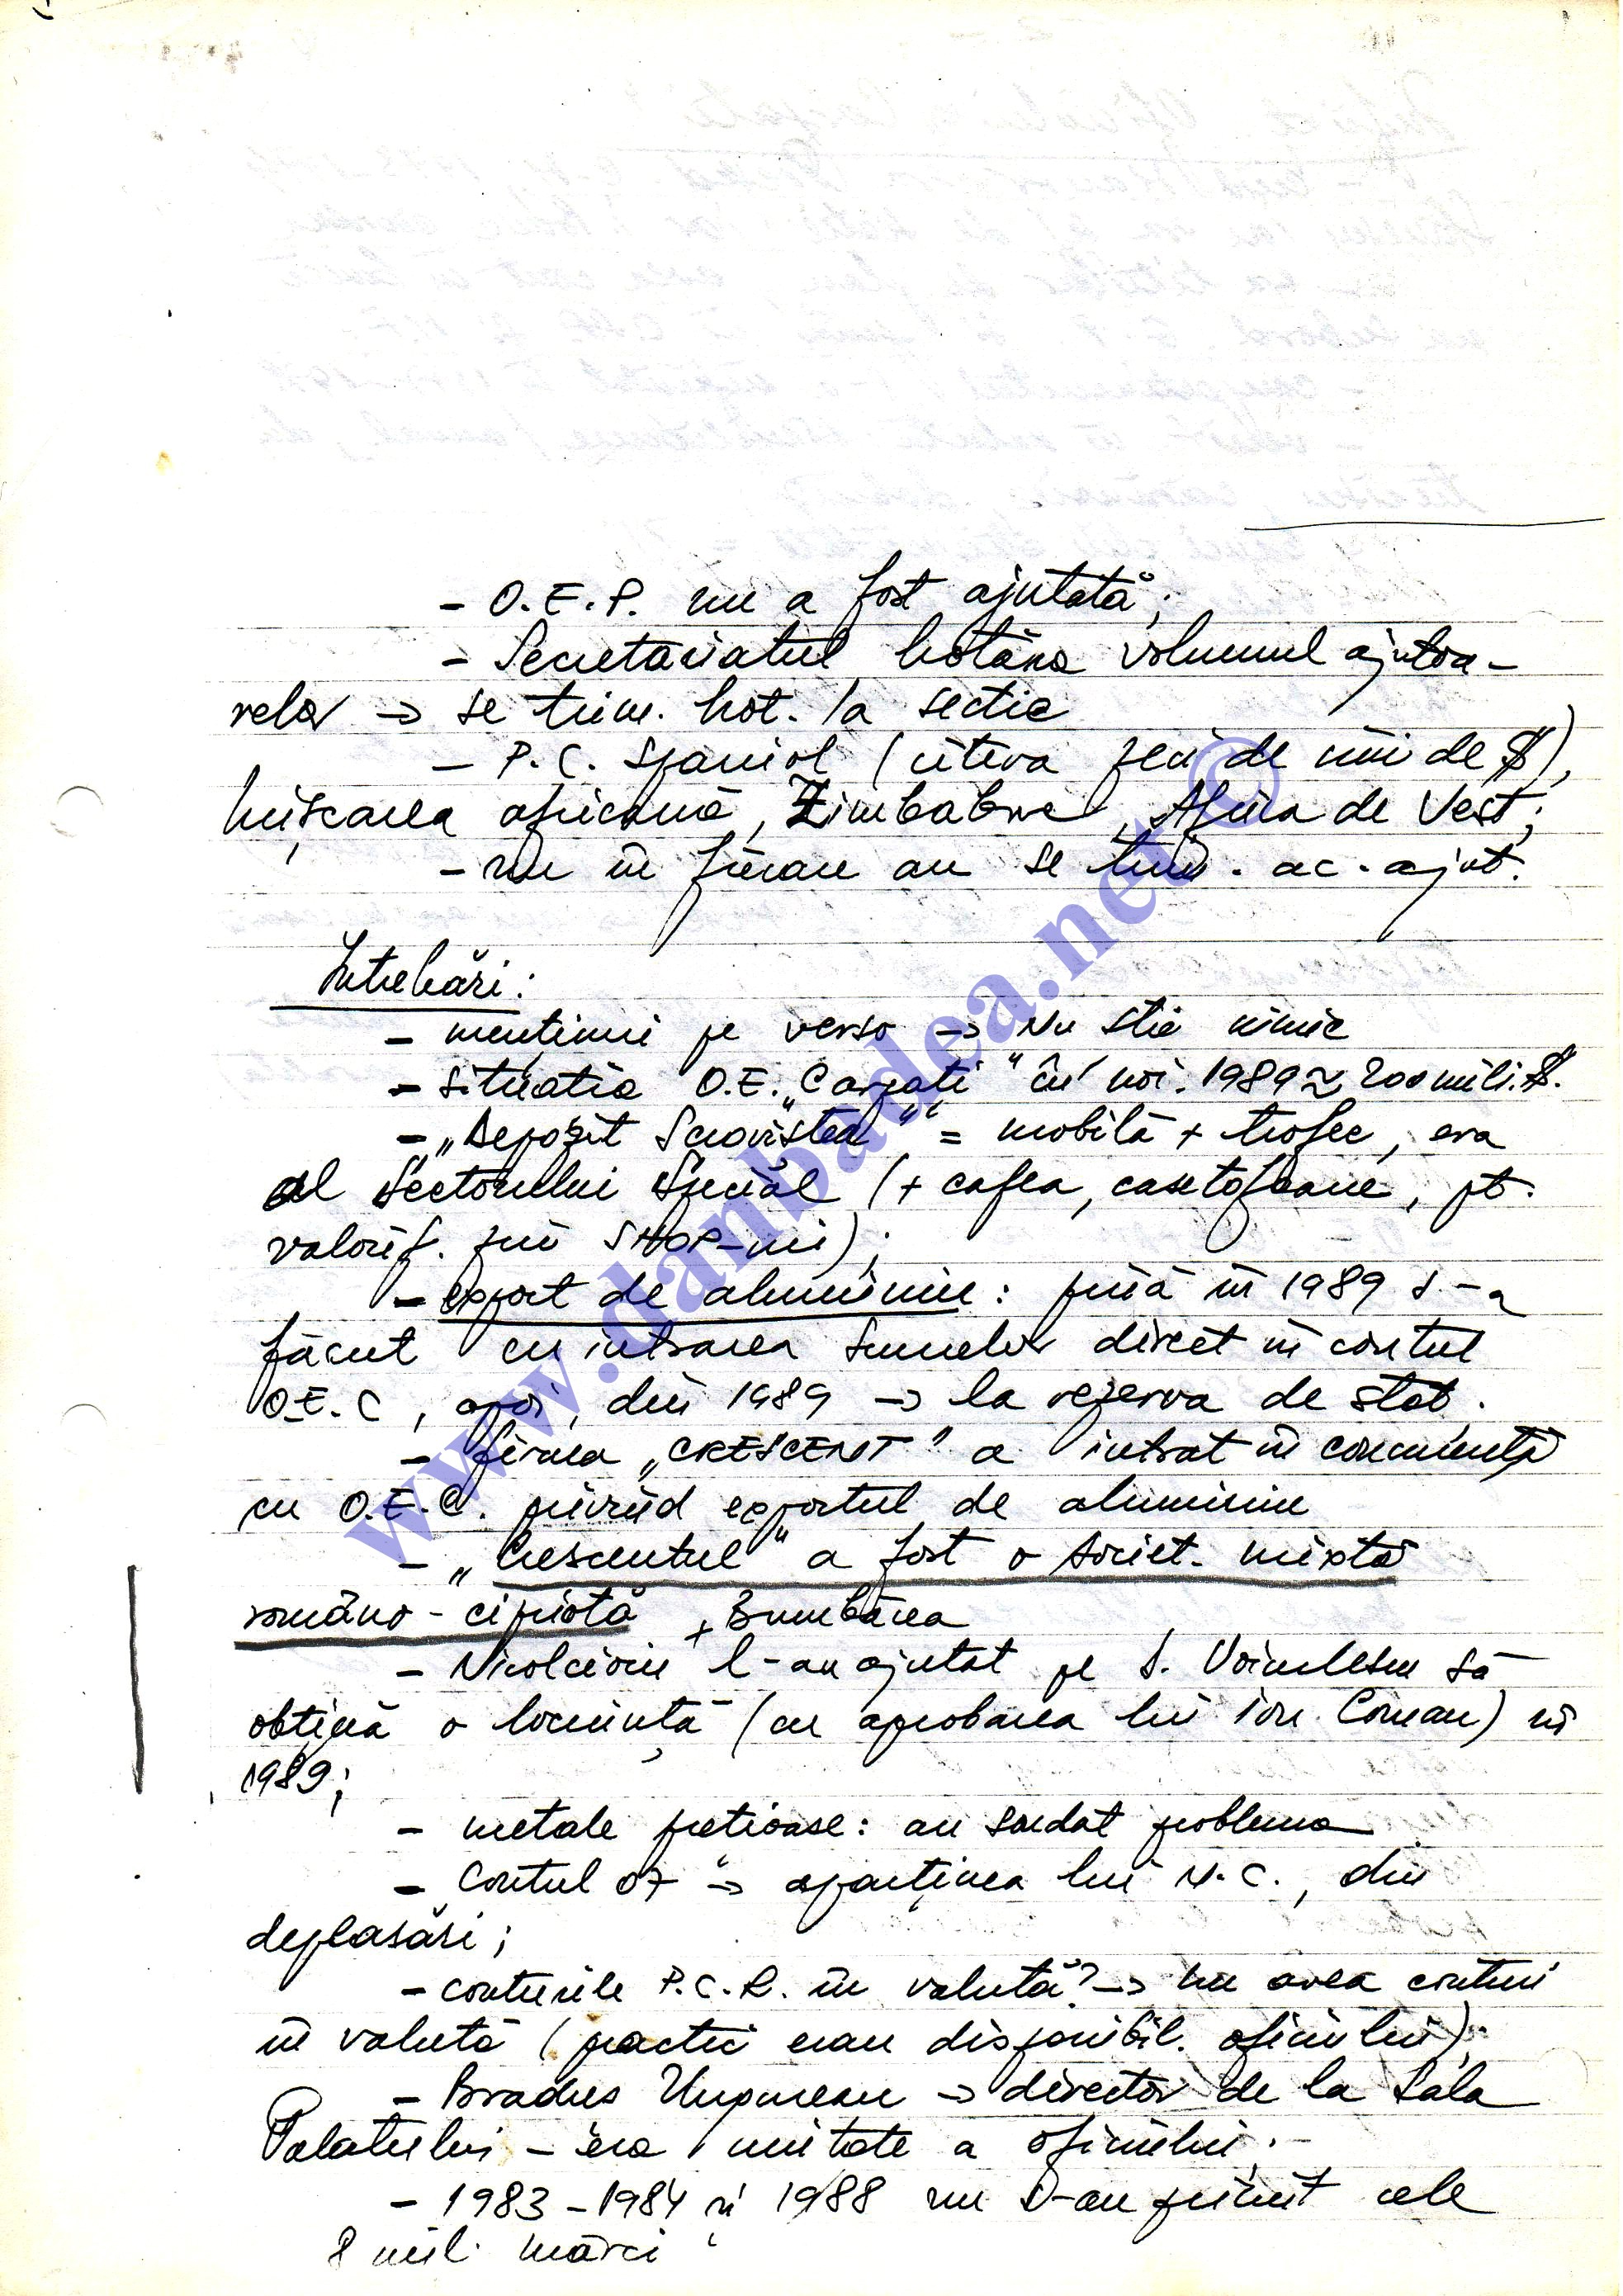 - O.E.P. nu a fost ajutată;
- Secretariatul hotăra volumul ajutoa-
relor → se trim. hot. la secție
- P.C. Spaniol (cîteva zeci de mii de $),
mișcarea africană, Zimbabwe, Africa de Vest;
- nu în fiecare an se trim. ac. ajut.
Întrebări:
- mențiuni pe verso → Nu știe nimic
- situația O.E. „Carpați" în noi. 1989 ≈ 200 mili. $.
- „Depozit Scroviștea" = mobilă + trofee, era
al Sectorului Special (+ cafea, casetofoane, pt.
valorif. prin SHOP-uri);
- export de aluminiu: pînă în 1989 s-a
făcut cu intrarea sumelor direct în contul
O.E.C, apoi, din 1989 → la rezerva de stat.
- firma „CRESCENT" a intrat în concurență
cu O.E.C. privind exportul de aluminiu
- „Crescentul" a fost o societ. mixtă
româno-cipriotă + Bumbărea
- Nicolcioiu l-au ajutat pe S. Voinulescu să
obțină o locuință (cu aprobarea lui Ion Coman) în
1989;
- metale prețioase: au problema
- Contul 07 → aparținea lui N.C., din
deplasări;
- conturile P.C.R. în valută? → nu avea conturi
în valută (practic erau disponibil. oficiului);
- Bradus Ungureanu → director de la Sala
Palatului - era unitate a oficiului.
- 1983-1984 și 1988 nu s-au primit cele
8 mil. mărci
www.danbadea.net ©